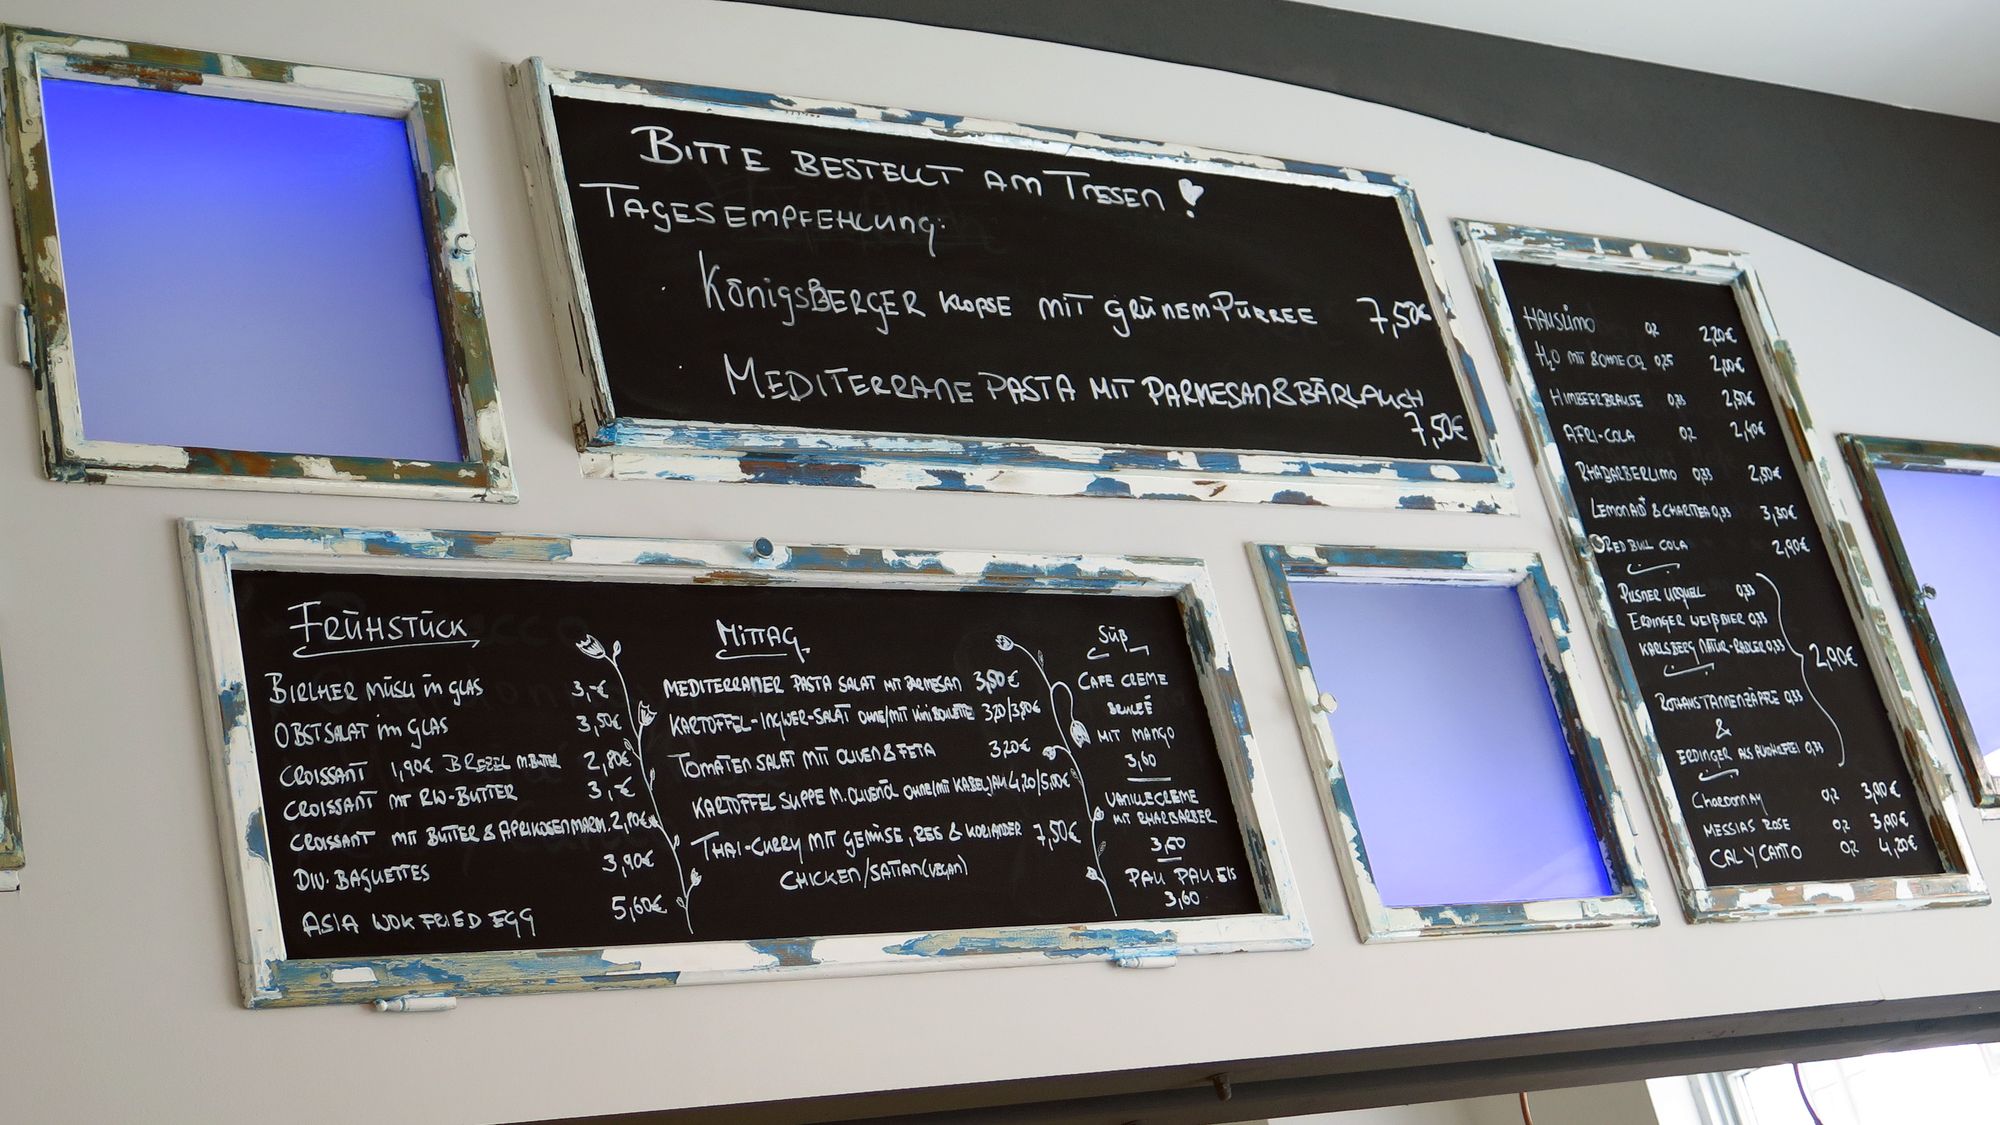 BITTE BESTELLT AM TRESEN!
TAGESEMPFEHLUNG:
· KÖNIGSBERGER KLOPSE MIT GRÜNEM PÜRREE 7,50€
· MEDITERRANE PASTA MIT PARMESAN & BÄRLAUCH
7,50€
FRÜHSTÜCK
BIRCHER MÜSLI IM GLAS 3,-€
OBSTSALAT IM GLAS 3,50€
CROISSANT 1,90€ BREZEL M. BUTTER 2,80€
CROISSANT MIT RW-BUTTER 3,-€
CROISSANT MIT BUTTER & APRIKOSENMARM. 2,80€
DIV. BAGUETTES 3,90€
ASIA WOK FRIED EGG 5,60€
MITTAG
MEDITERRANER PASTA SALAT MIT PARMESAN 3,80€
KARTOFFEL-INGWER-SALAT OHNE/MIT MINI BOULETTE 3,20/3,80€
TOMATEN SALAT MIT OLIVEN & FETA 3,20€
KARTOFFEL SUPPE M. OLIVENÖL OHNE/MIT KABELJAU 4,20/5,00€
THAI-CURRY MIT GEMÜSE, REIS & KORIANDER 7,50€
CHICKEN/SAITAN (VEGAN)
SÜß
CAFE CREME
BRULEÉ
MIT MANGO
3,60
VANILLECREME
MIT RHABARBER
3,60
PAU PAU EIS
3,60
HAUSLIMO 0,2 2,20€
H2O MIT & OHNE CO2 0,25 2,00€
HIMBEERBRAUSE 0,33 2,50€
AFRI-COLA 0,2 2,40€
RHABARBERLIMO 0,33 2,50€
LEMONAID & CHARITEA 0,33 3,30€
RED BULL COLA 2,90€
PILSNER URQUELL 0,33
ERDINGER WEIßBIER 0,33
KARLSBERG NATUR-RADLER 0,33
2,90€
ROTHAUS TANNENZÄPFLE 0,33
&
ERDINGER ALS ALKOHLFREI 0,33
CHARDONNAY 0,2 3,90€
MESSIAS ROSE 0,2 3,90€
CAL Y CANTO 0,2 4,20€